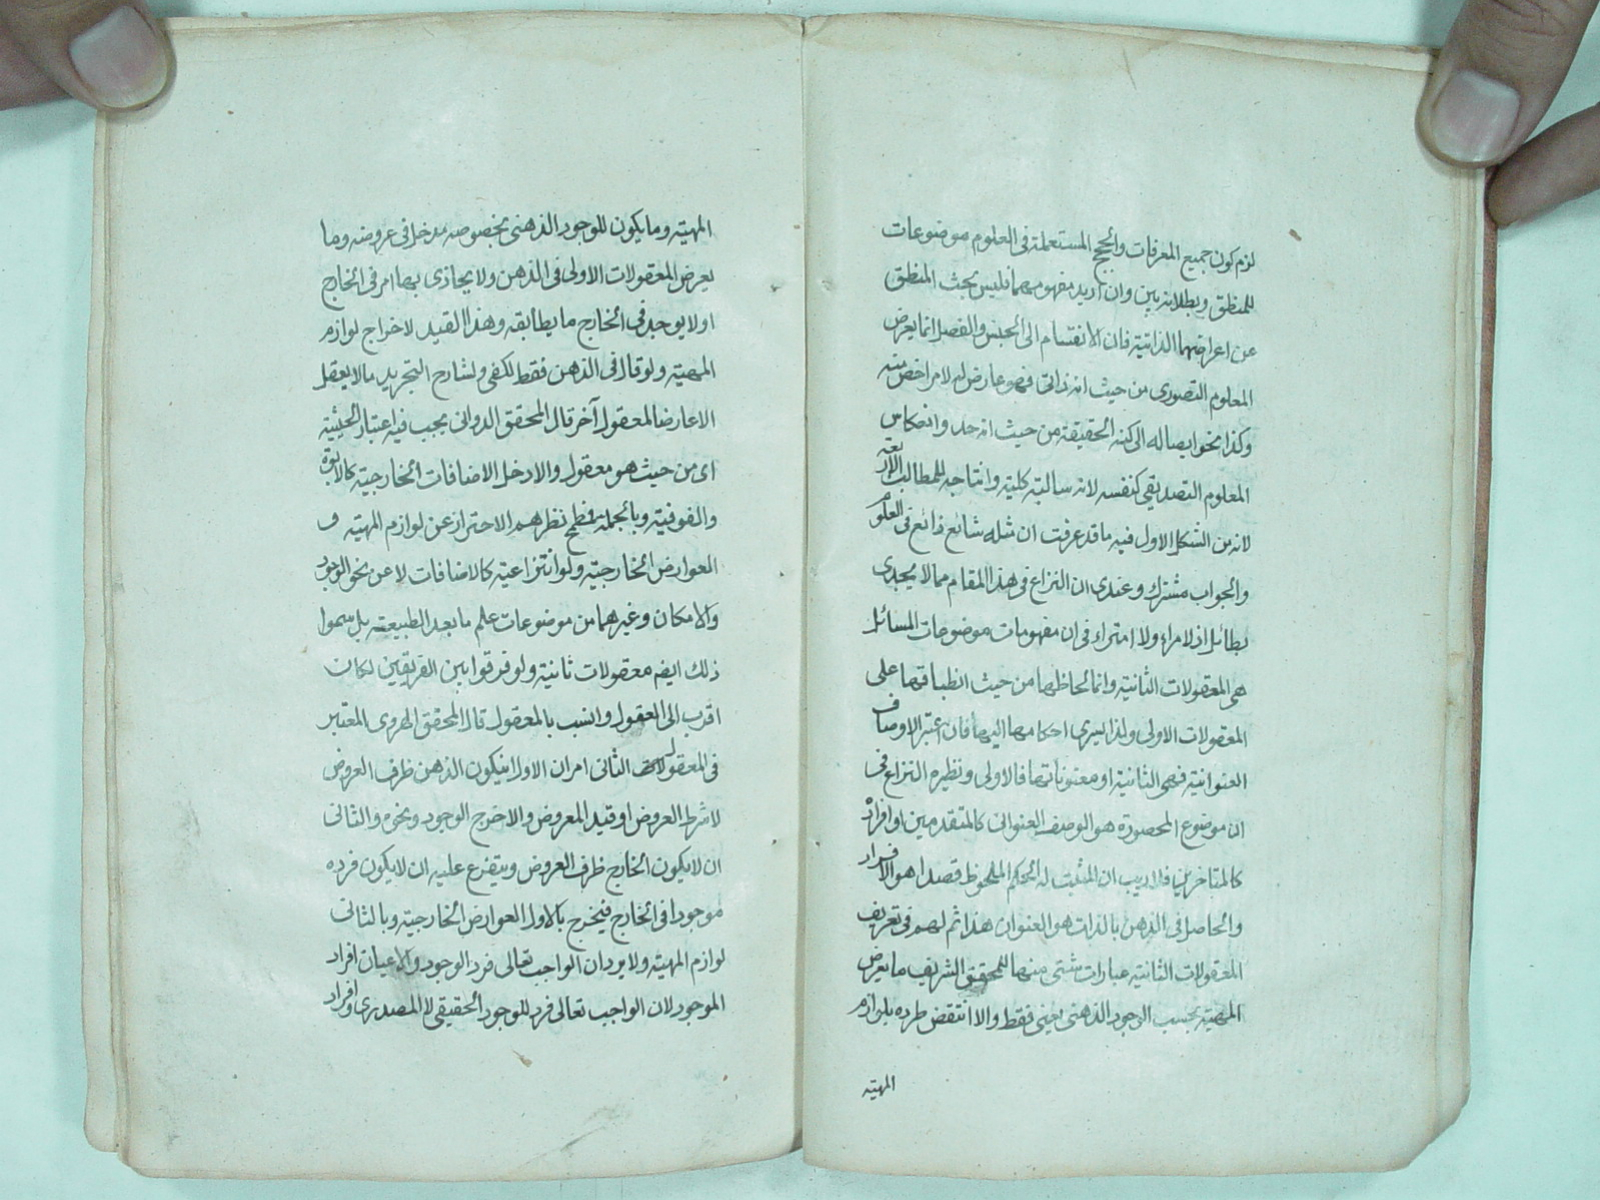 لزم كون جميع المعرفات والحجج المستعملة فى العلوم موضوعات
للمنطق وبطلانه بين وان اريد مفهومهما فليس بحث المنطق
عن اعراضهما الذاتية فان الانقسام الى الجنس والفصل انما يعرض
المعلوم التصورى من حيث انه ذاتى فهو عارض له لامر اخص منه
وكذا نحو ايصاله الى كنه الحقيقة من حيث انه حد وانعكاس
المعلوم التصديقى كنفسه لانه سالبة كلية وانتاجه للمطالب الاربعة
لانه من الشكل الاول فيه ما قد عرفت ان مثله شائع ذائع فى العلوم
والجواب مشترك وعندى ان النزاع فى هذا المقام مما لا يجدى
بطائل اذ لا مراء ولا امتراء فى ان مفهومات موضوعات المسائل
هى المعقولات الثانية وانما لحاظها من حيث انطباقها على
المعقولات الاولى ولذا يسرى احكامها اليها فان اعتبر الاوصاف
العنوانية فهى الثانية او معنوناتها فالاولى ونظيره النزاع فى
ان موضوع المحصورة هو الوصف العنوانى كالمتقدمين او افراده
كالمتاخرين فلا ريب ان المثبت له الحكم الملحوظ قصدا هو الافراد
والحاصل فى الذهن بالذات هو العنوان هذا ثم لهم فى تعريف
المعقولات الثانية عبارات شتى منها للمحقق الشريف ما يعرض
المهية بحسب الوجود الذهنى يعنى فقط والا انتقض طرده بلوازم
المهية
المهية وما يكون للوجود الذهنى بخصوصه مدخل فى عروضه وما
يعرض المعقولات الاولى فى الذهن ولا يحاذى بها امر فى الخارج
او لا يوجد فى الخارج ما يطابقه وهذا القيد لاخراج لوازم
المهية ولو قال فى الذهن فقط لكفى ولشارح التجريد ما لا يعقل
الا عارضا لمعقول آخر قال المحقق الدوانى يجب فيه اعتبار الحيثية
اى من حيث هو معقول والا دخل الاضافات الخارجية كالابوة
والفوقية وبالجملة مطمح نظرهم الاحتراز عن لوازم المهية و
العوارض الخارجية ولو انتزاعية كالاضافات لا عن نحو الوجود
والامكان وغيرهما من موضوعات علم ما بعد الطبيعة بل سموا
ذلك ايضا معقولات ثانية ولو فرقوا بين الفريقين لكان
اقرب الى العقول وانسب بالمعقول قال المحقق الهروى المعتبر
فى المعقول الثانى امران الاول ان يكون الذهن ظرف العروض
لا شرط العروض او قيد المعروض والا خرج الوجود ونحوه والثانى
ان لا يكون الخارج ظرف العروض ويتفرع عليه ان لا يكون فرده
موجودا فى الخارج فيخرج بالاول العوارض الخارجية وبالثانى
لوازم المهية ولا يرد ان الواجب تعالى فرد الوجود والاعيان افراد
الموجود لان الواجب تعالى فرد للوجود الحقيقى لا المصدرى وافراد